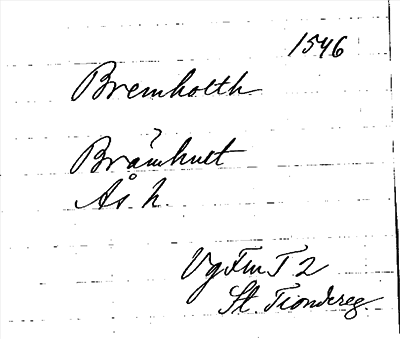 1546
Bremholth
?
Brämhult
Ås h.
Vg Fm T 2
St. Tiondereg.